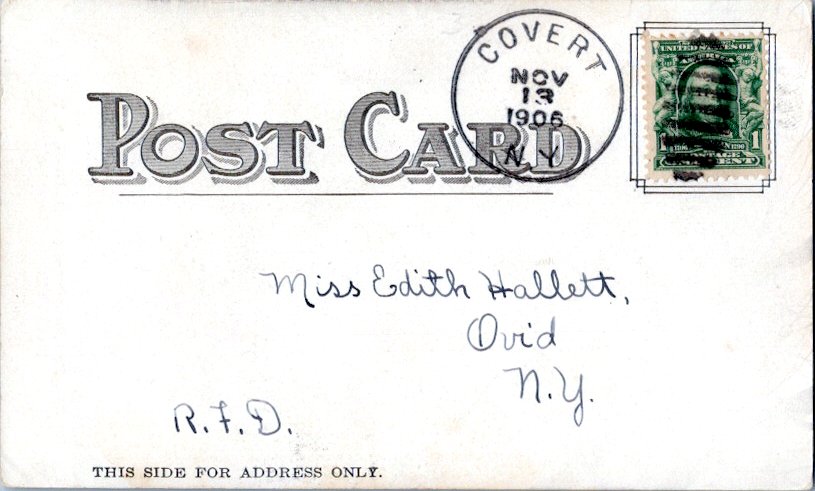 COVERT
NOV
13
1906
N.Y.
POST CARD
UNITED STATES OF
1
Miss Edith Hallett,
Ovid
N.Y.
R.F.D.
THIS SIDE FOR ADDRESS ONLY.